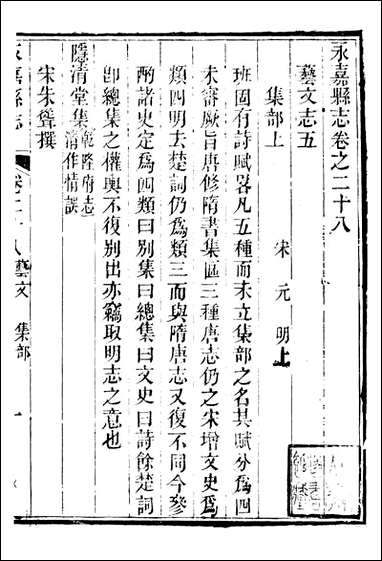 永嘉縣志卷之二十八
藝文志五
集部上　宋　元　明上
班固有詩賦畧凡五種而未立集部之名其賦分爲四
未審厥旨唐修隋書集區三種唐志仍之宋增文史爲
類四明去楚詞仍爲類三而與隋唐志又復不同今參
酌諸史定爲四類曰別集曰總集曰文史曰詩餘楚詞
卽總集之權輿不復別出亦竊取明志之意也
隱清堂集乾隆府志
清作情誤
宋朱聳撰
永嘉縣志
卷二十八藝文　集部
一